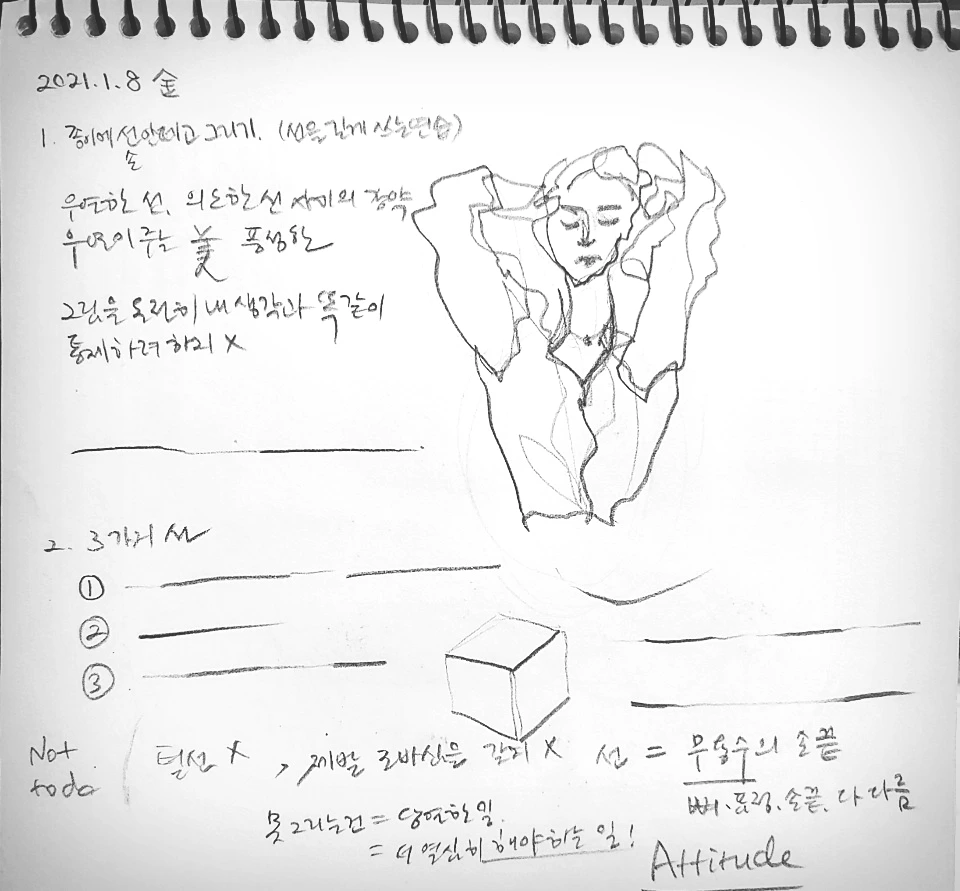 2021.1.8 金
1. 종이에 선 안떼고 그리기. (선을 길게 쓰는 연습)
손
우연한 선, 의도한 선 사이의 강약
우연이 주는 美 풍성한
그림을 온전히 내 생각과 똑같이
통제하려 하지 X
2. 3가지 선
①
②
③
Not todo
털선 X , 제발 로바신은 갈지 X 선 = 무용수의 손끝
뼈.표정.손끝.다 다름
못그리는건 = 당연한 일.
= 더 열심히 해야하는 일!
Attitude